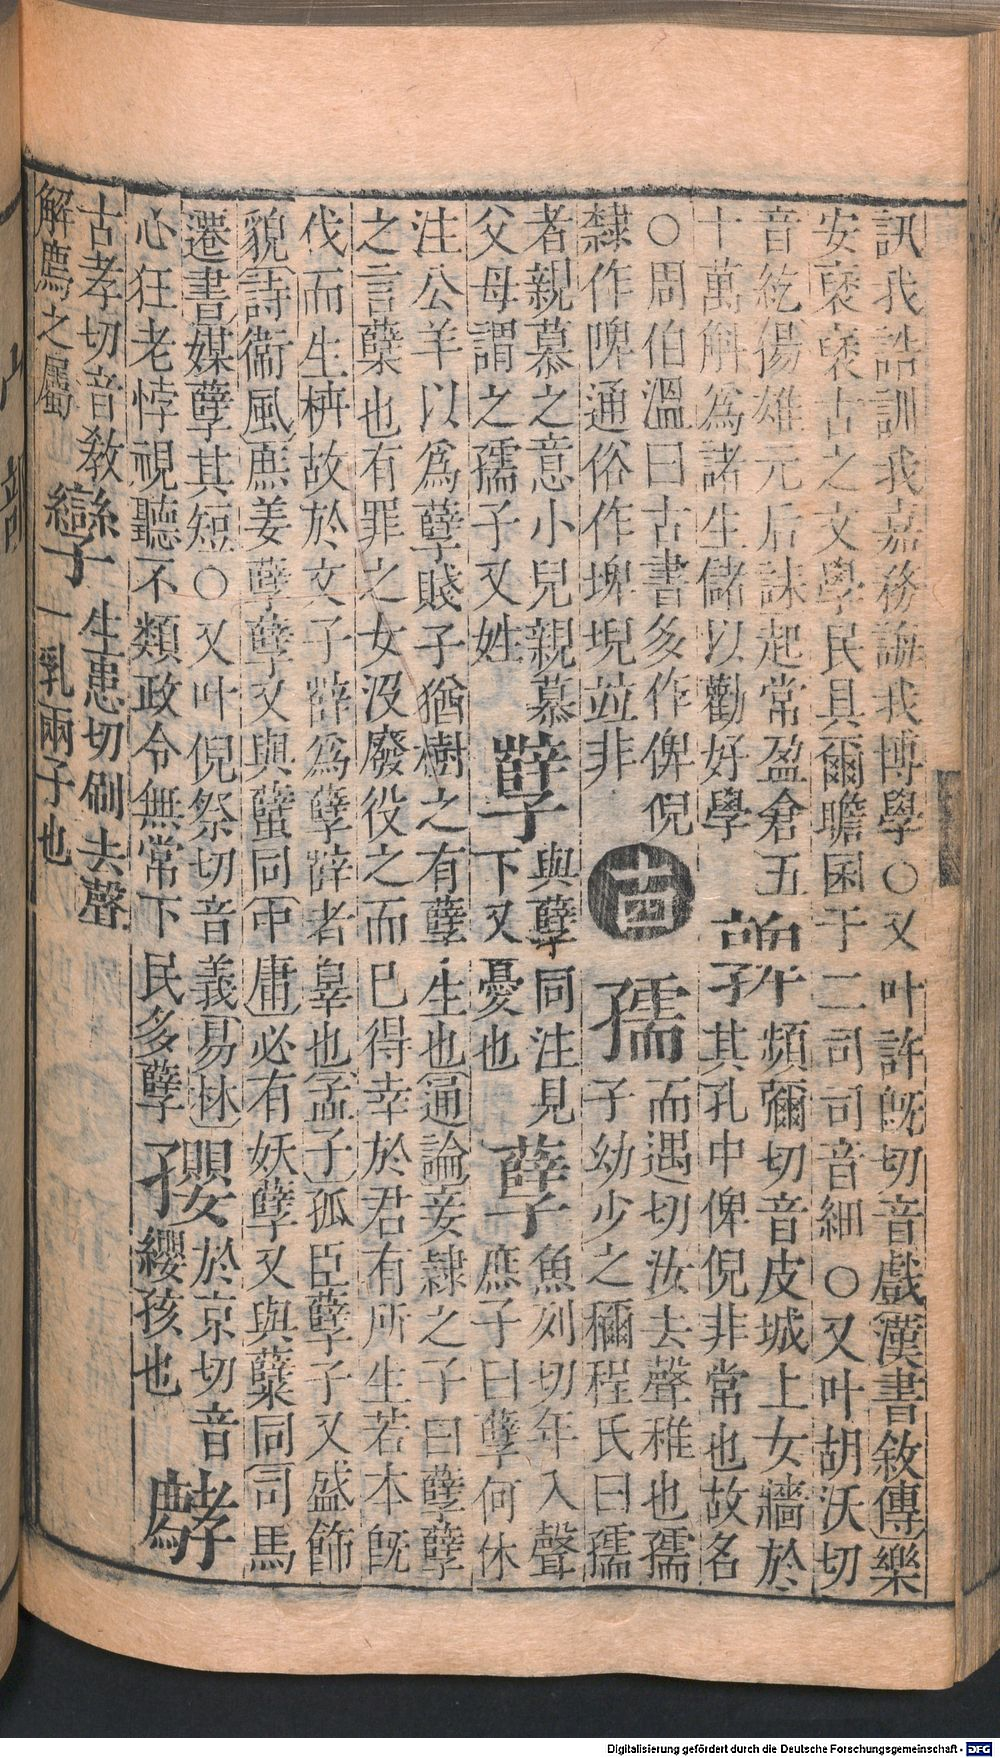 訊我誥訓我嘉務誨我博學〇又叶許旣切音戲漢書敘傳樂
安裦裦古之文學民具爾瞻困于二司司音細〇又叶胡沃切
音紇揚雄元后誄起常盈倉五
十萬斛爲諸生儲以勸好學
頻彌切音皮城上女牆於
其孔中俾倪非常也故名
〇周伯溫曰古書多作俾倪
隸作啤通俗作埤堄竝非
古
孺
而遇切汝去聲稚也孺
子幼少之稱程氏曰孺
者親慕之意小兒親慕
父母謂之孺子又姓
孽
與孽同注見
下又憂也
孽
魚列切年入聲
庶子曰孽何休
注公羊以爲孽賤子猶樹之有孽生也通論妾隸之子曰孽孽
之言櫱也有罪之女沒廢役之而已得幸於君有所生若本旣
伐而生枿故於文子辥爲孽辥者辠也孟子孤臣孽子又盛飾
貌詩衞風庶姜孽孽又與蠥同中庸必有妖孽又與櫱同司馬
遷書媒孽其短〇又叶倪祭切音義易林
心狂老悖視聽不類政令無常下民多孽
孾
於京切音
纓孩也
古孝切音教
解廌之屬
孿
生患切刷去聲
一乳兩子也
Digitalisierung gefördert durch die Deutsche Forschungsgemeinschaft - DFG